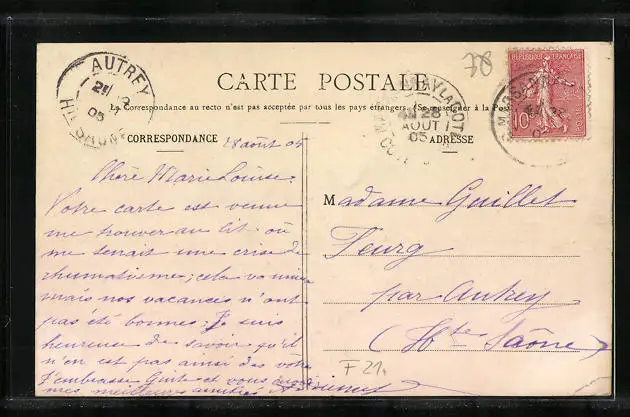 78
CARTE POSTALE
La Correspondance au recto n'est pas acceptée par tous les pays étrangers. (Se renseigner à la Poste
CORRESPONDANCE
ADRESSE
AUTREY
Hte SAONE
05
28
AOUT
05
REPUBLIQUE FRANÇAISE
10
28 août 05
Chère Marie Louise.
Votre carte est venue
me trouver au lit où
me tenait une crise de
rhumatisme; cela va mieux
mais nos vacances n'ont
pas été bonnes. Je suis
heureuse de savoir qu'il
n'en est pas ainsi des vôtres
J'embrasse et vous
mes meilleures amitiés
Madame Guillet
Feurg
par Autrey
(Hte Saône)
F 21.